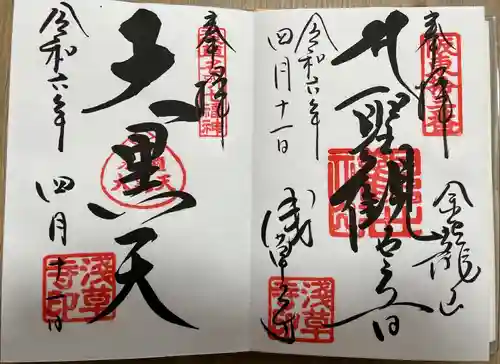 奉拝
金龍山
聖観世音
浅草寺
令和六年
四月十一日
浅草寺印
奉拝
大黒天
令和六年
四月十一日
浅草寺印